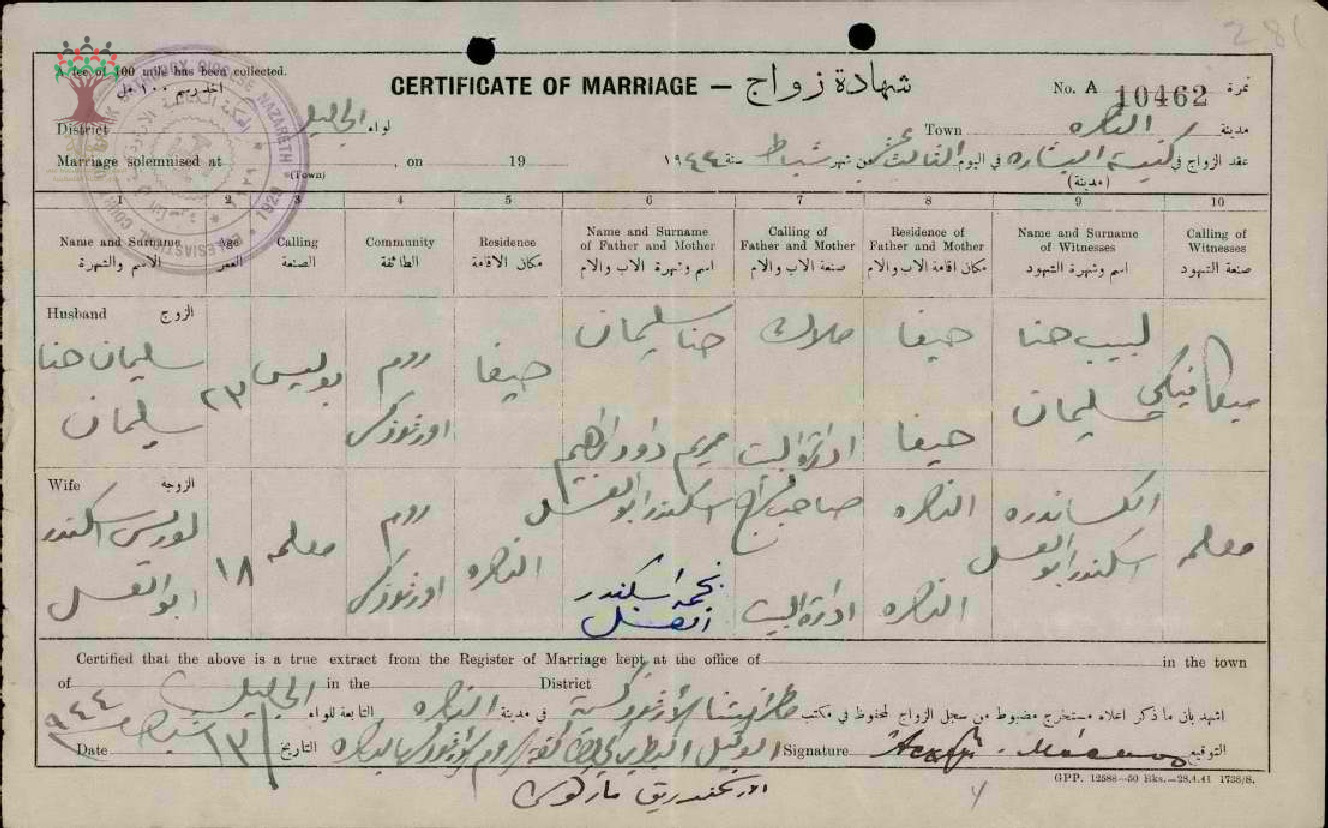 281
A fee of 100 mils has been collected.
اخذ رسم ١٠٠ مل
CERTIFICATE OF MARRIAGE – شهادة زواج
No. A 10462 نمرة
District لواء الجليل
Town الناصره مدينة
Marriage solemnised at , on 19
(Town)
عقد الزواج في كنيسة البشاره في اليوم الثالث عشر من شهر شباط سنة ١٩٤٤
(مدينة)
1 2 3 4 5 6 7 8 9 10
Name and Surname
الاسم والشهرة
Age
العمر
Calling
الصنعة
Community
الطائفة
Residence
مكان الاقامة
Name and Surname
of Father and Mother
اسم وشهرة الاب والام
Calling of
Father and Mother
صنعة الاب والام
Residence of
Father and Mother
مكان اقامة الاب والام
Name and Surname
of Witnesses
اسم وشهرة الشهود
Calling of
Witnesses
صنعة الشهود
Husband الزوج
سليمان حنا
سليمان
٢٣
بوليس
روم
اورثوذكس
حيفا
حنا سليمان
مريم داود ابراهيم
ملاك
ادارة البيت
حيفا
حيفا
لبيب حنا
سليمان
ميكانيكي
Wife الزوجه
لوريس اسكندر
ابو العسل
١٨
معلمه
روم
اورثوذكس
الناصره
اسكندر ابو العسل
نجمة اسكندر
صاحب
ادارة البيت
الناصره
الناصره
الكساندره
اسكندر ابو العسل
معلمه
Certified that the above is a true extract from the Register of Marriage kept at the office of in the town
of in the District
اشهد بان ما ذكر اعلاه مستخرج مضبوط من سجل الزواج المحفوظ في مكتب الأرثوذكسية في مدينة الناصره التابعة للواء الجليل
Date ١٣ شباط ١٩٤٤ التاريخ
Signature التوقيع
GPP. 12588—50 Bks.—28.4.41 1738/8.